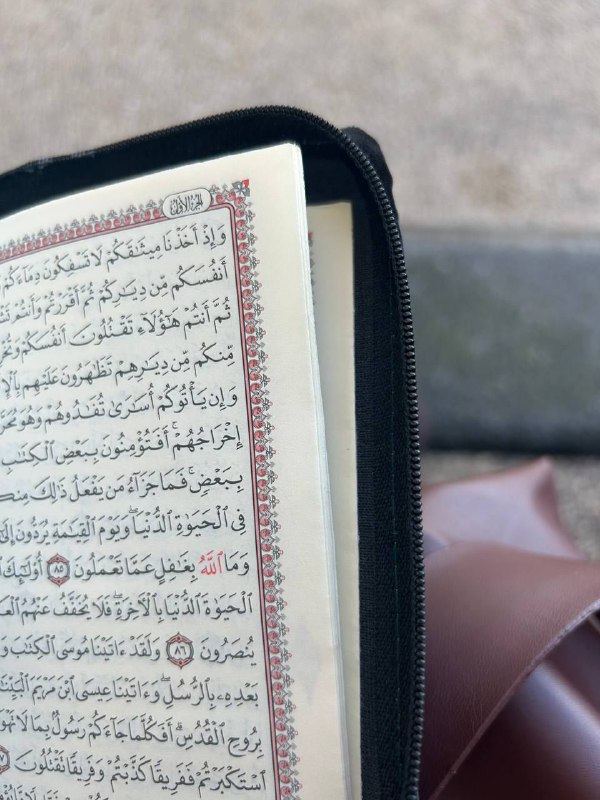 الجزء الأول
وَإِذْ أَخَذْنَا مِيثَٰقَكُمْ لَا تَسْفِكُونَ دِمَآءَكُمْ
أَنفُسَكُم مِّن دِيَٰرِكُمْ ثُمَّ أَقْرَرْتُمْ وَأَنتُمْ
ثُمَّ أَنتُمْ هَٰٓؤُلَآءِ تَقْتُلُونَ أَنفُسَكُمْ
مِّنكُم مِّن دِيَٰرِهِمْ تَظَٰهَرُونَ عَلَيْهِم
وَإِن يَأْتُوكُمْ أُسَٰرَىٰ تُفَٰدُوهُمْ وَهُوَ
إِخْرَاجُهُمْ ۚ أَفَتُؤْمِنُونَ بِبَعْضِ ٱلْكِتَٰبِ
بِبَعْضٍ ۚ فَمَا جَزَآءُ مَن يَفْعَلُ ذَٰلِكَ
فِى ٱلْحَيَوٰةِ ٱلدُّنْيَا ۖ وَيَوْمَ ٱلْقِيَٰمَةِ يُرَدُّونَ إِلَىٰٓ
وَمَا ٱللَّهُ بِغَٰفِلٍ عَمَّا تَعْمَلُونَ ٨٥ أُو۟لَٰٓئِكَ
ٱلْحَيَوٰةَ ٱلدُّنْيَا بِٱلْءَاخِرَةِ ۖ فَلَا يُخَفَّفُ عَنْهُمُ
يُنصَرُونَ ٨٦ وَلَقَدْ ءَاتَيْنَا مُوسَى ٱلْكِتَٰبَ
بَعْدِهِۦ بِٱلرُّسُلِ ۖ وَءَاتَيْنَا عِيسَى ٱبْنَ مَرْيَمَ
بِرُوحِ ٱلْقُدُسِ ۗ أَفَكُلَّمَا جَآءَكُمْ رَسُولٌۢ بِمَا لَا
ٱسْتَكْبَرْتُمْ فَفَرِيقًا كَذَّبْتُمْ وَفَرِيقًا تَقْتُلُونَ